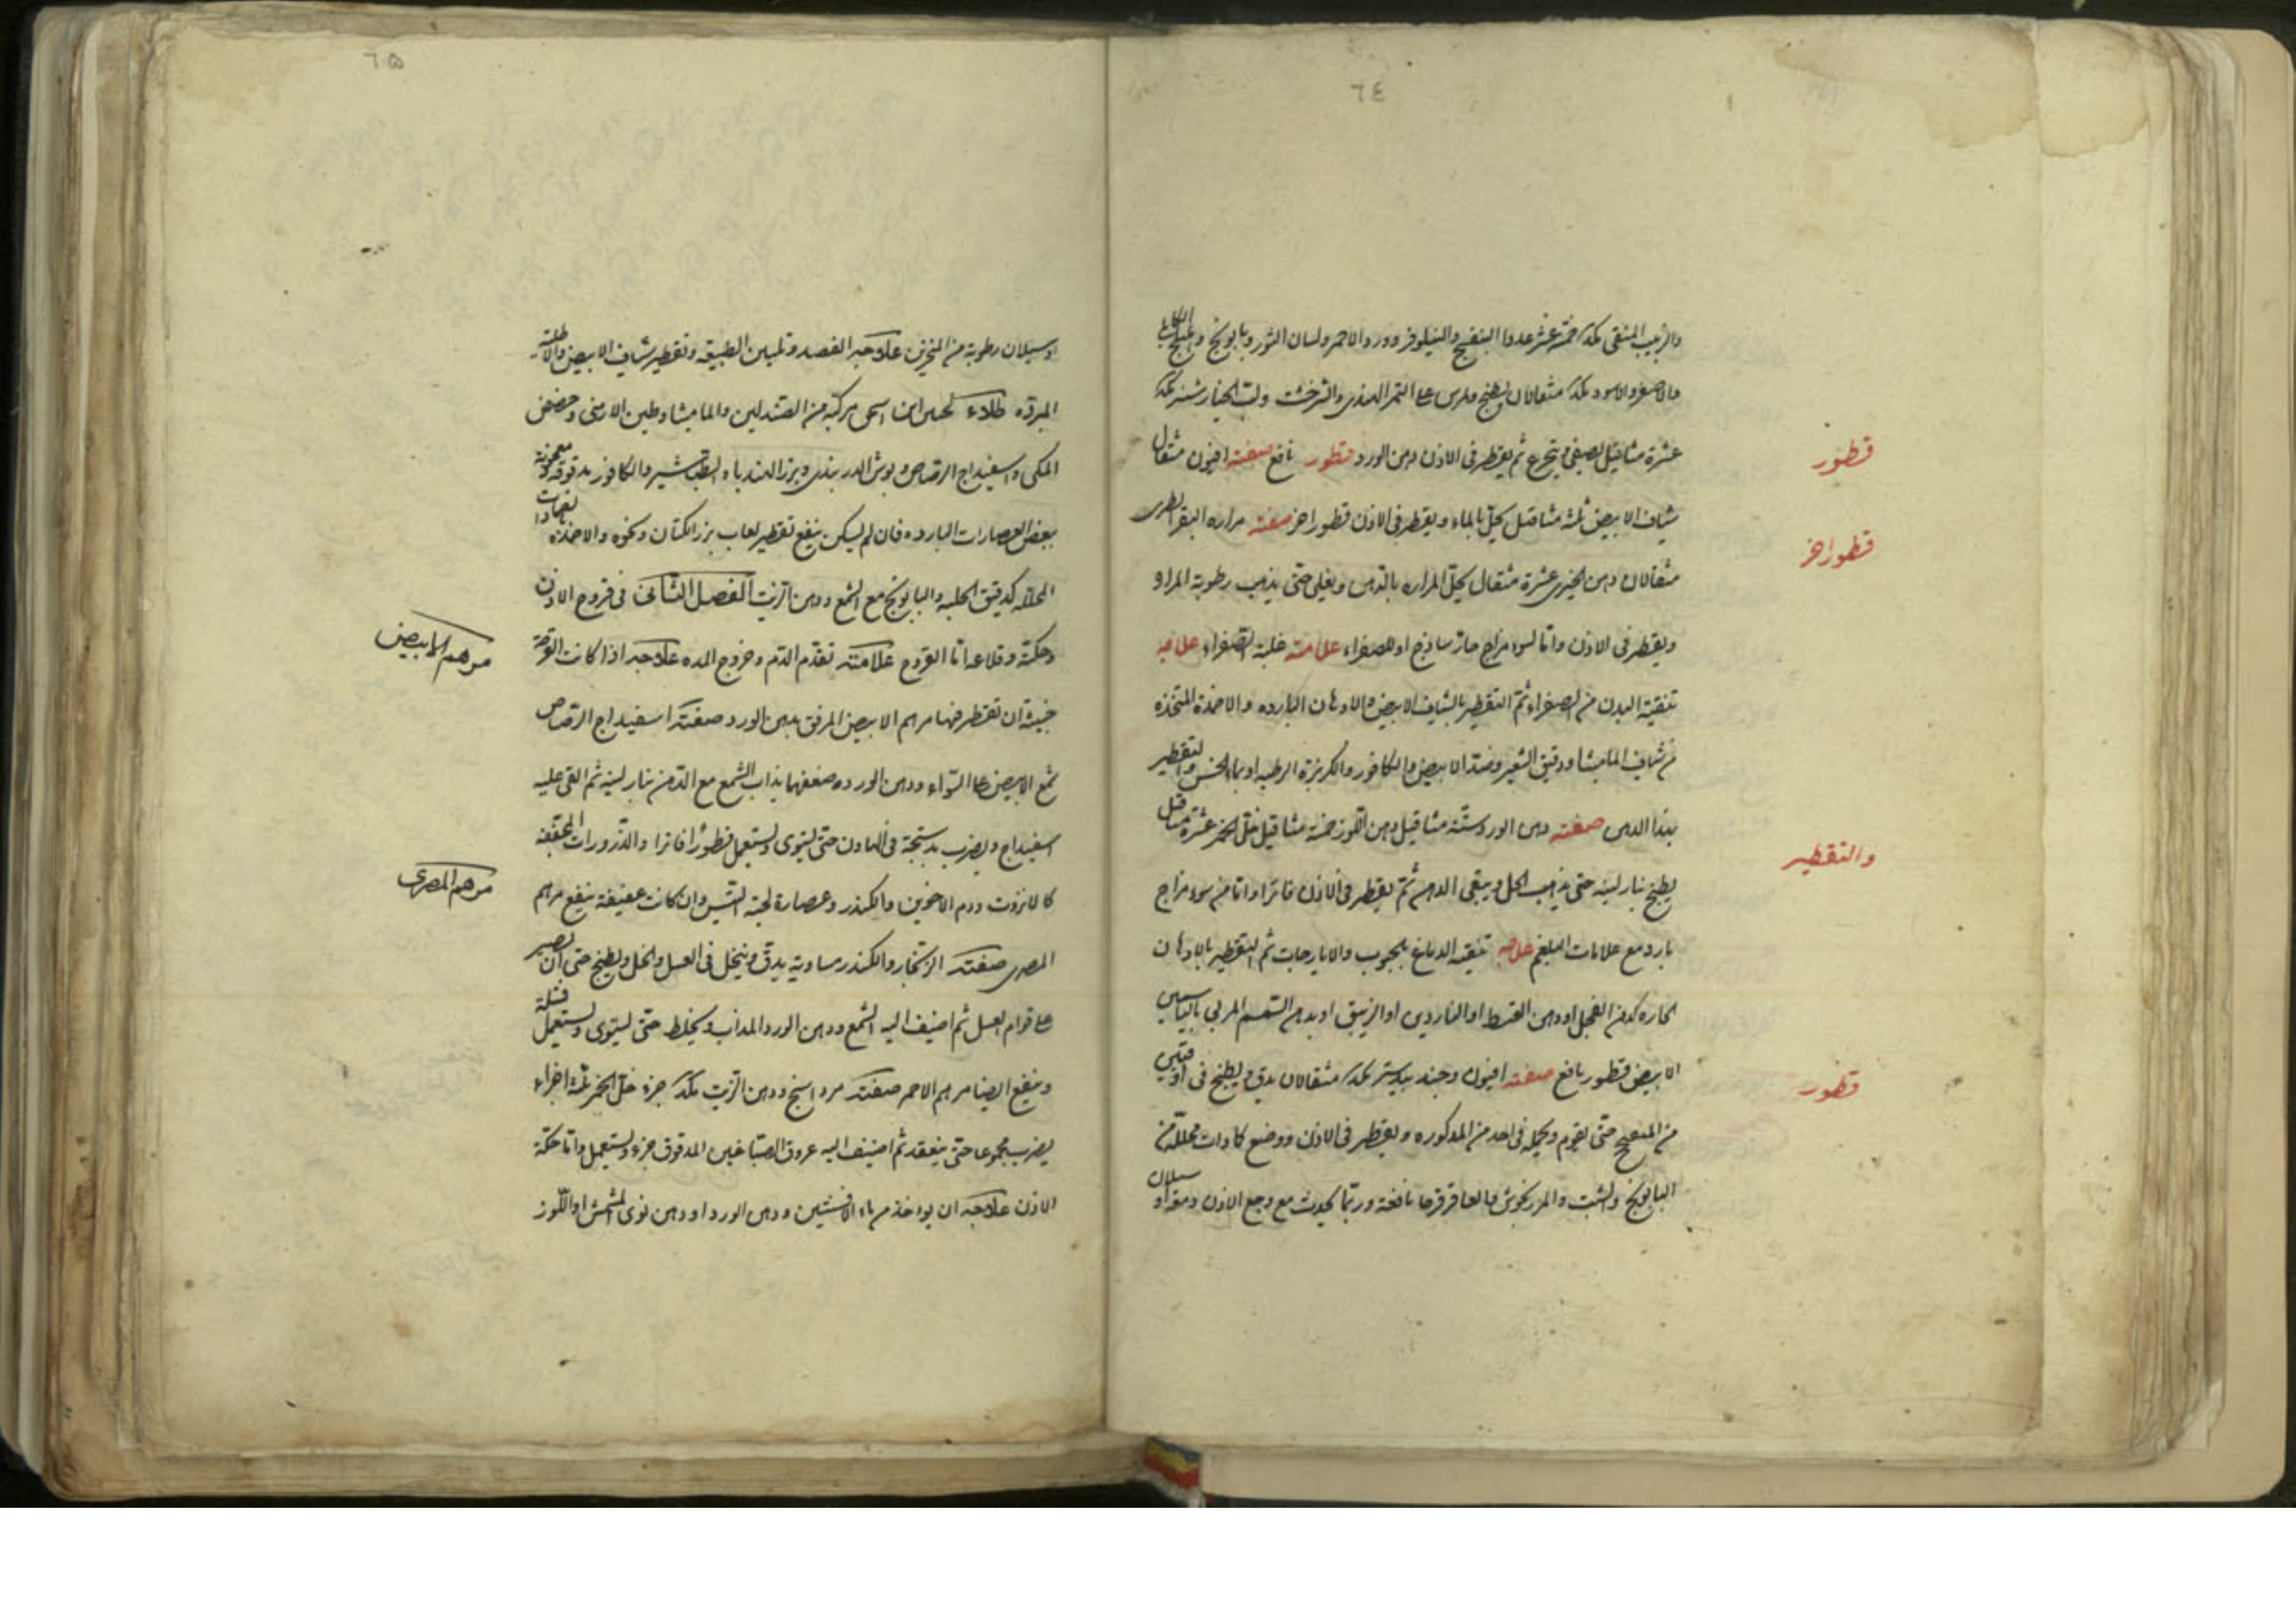 ٦٤
والزبيب المنقى مكد خمسة عشر عددا البنفسج والنيلوفر وورد الاحمر ولسان الثور وبابونج
والاصفر والاسود مكد مثقالان يطبخ ويمرس على التمر الهندى والترخشت ولب الخيار شنبر مكد
عشرة مثاقيل يصفى ويتجرع ثم يقطر فى الاذن دهن الورد قطور نافع صفته افيون مثقال
قطور
شياف الابيض ثلثة مثاقيل يحل بالماء ويقطر فى الاذن قطور اخر صفته مراره البقر الطرى
قطور اخر
مثقالان دهن الخيرى عشرة مثقال يحل المراره بالدهن ويغلى حتى يذهب رطوبة المراره
ويقطر فى الاذن واما لسوء مزاج حار ساذج او للصفراء علامته غلبة الصفراء علاجه
تنقية البدن من الصفراء ثم التقطير بالشياف الابيض والادهان البارده والاضمدة المتخذه
من شياف الماميثا ودقيق الشعير وصندل الابيض والكافور والكزبرة الرطبه او بماء الخس والتقطير
بهذا الدهن صفته دهن الورد ستة مثاقيل دهن اللوز خمسة مثاقيل خل الخمر عشرة مثاقيل
والتقطير
يطبخ بنار لينه حتى يذهب الخل ويبقى الدهن ثم يقطر فى الاذن فاترا واما من سوء مزاج
بارد مع علامات البلغم علاجه تنقيه الدماغ بالحبوب والايارجات ثم التقطير بالادهان
الحاره كدهن الفجل او دهن القسط او الناردين او الزنبق او بدهن السمسم المربى بالياسمين
الابيض قطور نافع صفته افيون وجند بيدستر مكد مثقالان يدق ويطبخ فى اوقيتين
قطور
من الميفختج حتى يقوم ويحل فى احد من المذكوره ويقطر فى الاذن ووضع كمادات محللة من
البابونج والشبت والمرزنجوش والعاقرقرحا نافعة وربما يحدث مع وجع الاذن دمعة او سيلان
٦٥
او سيلان رطوبة من المنخرين علاجه الفصد وتليين الطبيعة وتقطير شياف الابيض والاطلية
المبرده طلاء مركبه من الصندلين والماميثا وطين الارمنى وحضض
المكى واسفيداج الرصاص وبوش الدربندى وبزر الهندباء والطباشير والكافور مدقوقه معجونة
ببعض العصارات البارده فان لم يسكن ينفع تقطير لعاب بزر الكتان ونحوه والاضمدة
المحلله كدقيق الحلبه والبابونج مع الشمع ودهن الزيت الفصل الثانى فى قروح الاذن
وحكته وقلاعه اما القروح علامته تقدم الدم وخروج المده علاجه اذا كانت القرحة
مرهم الابيض
خبيثة ان تقطر فيها مرهم الابيض المرقق بدهن الورد صفته اسفيداج الرصاص
شمع الابيض على السواء ودهن الورد ضعفهما يذاب الشمع مع الدهن بنار لينه ثم القى عليه
اسفيداج ويضرب بدستجة فى الهاون حتى يستوى ويستعمل قطورا فاترا والذرورات المجففة
كالانزروت ودم الاخوين والكندر وعصارة لحية التيس وان كانت عفيفة ينفع مرهم
مرهم المصرى
المصرى صفته الزنجار والكندر مساوية يدق وينخل فى العسل والخل ويطبخ حتى ان يصير
على قوام العسل ثم اضيف اليه الشمع ودهن الورد المذاب ويخلط حتى يستوى ويستعمل فتيلة
وينفع ايضا مرهم الاحمر صفته مرداسنج ودهن الزيت مكد جزء خل الخمر ثلثة اجزاء
يضرب مجموعا حتى ينعقد ثم اضيف اليه عروق الصباغين المدقوق جزء ويستعمل واما حكة
الاذن علاجه ان يواخذ من ماء الافسنتين ودهن الورد او دهن نوى المشمش او اللوز